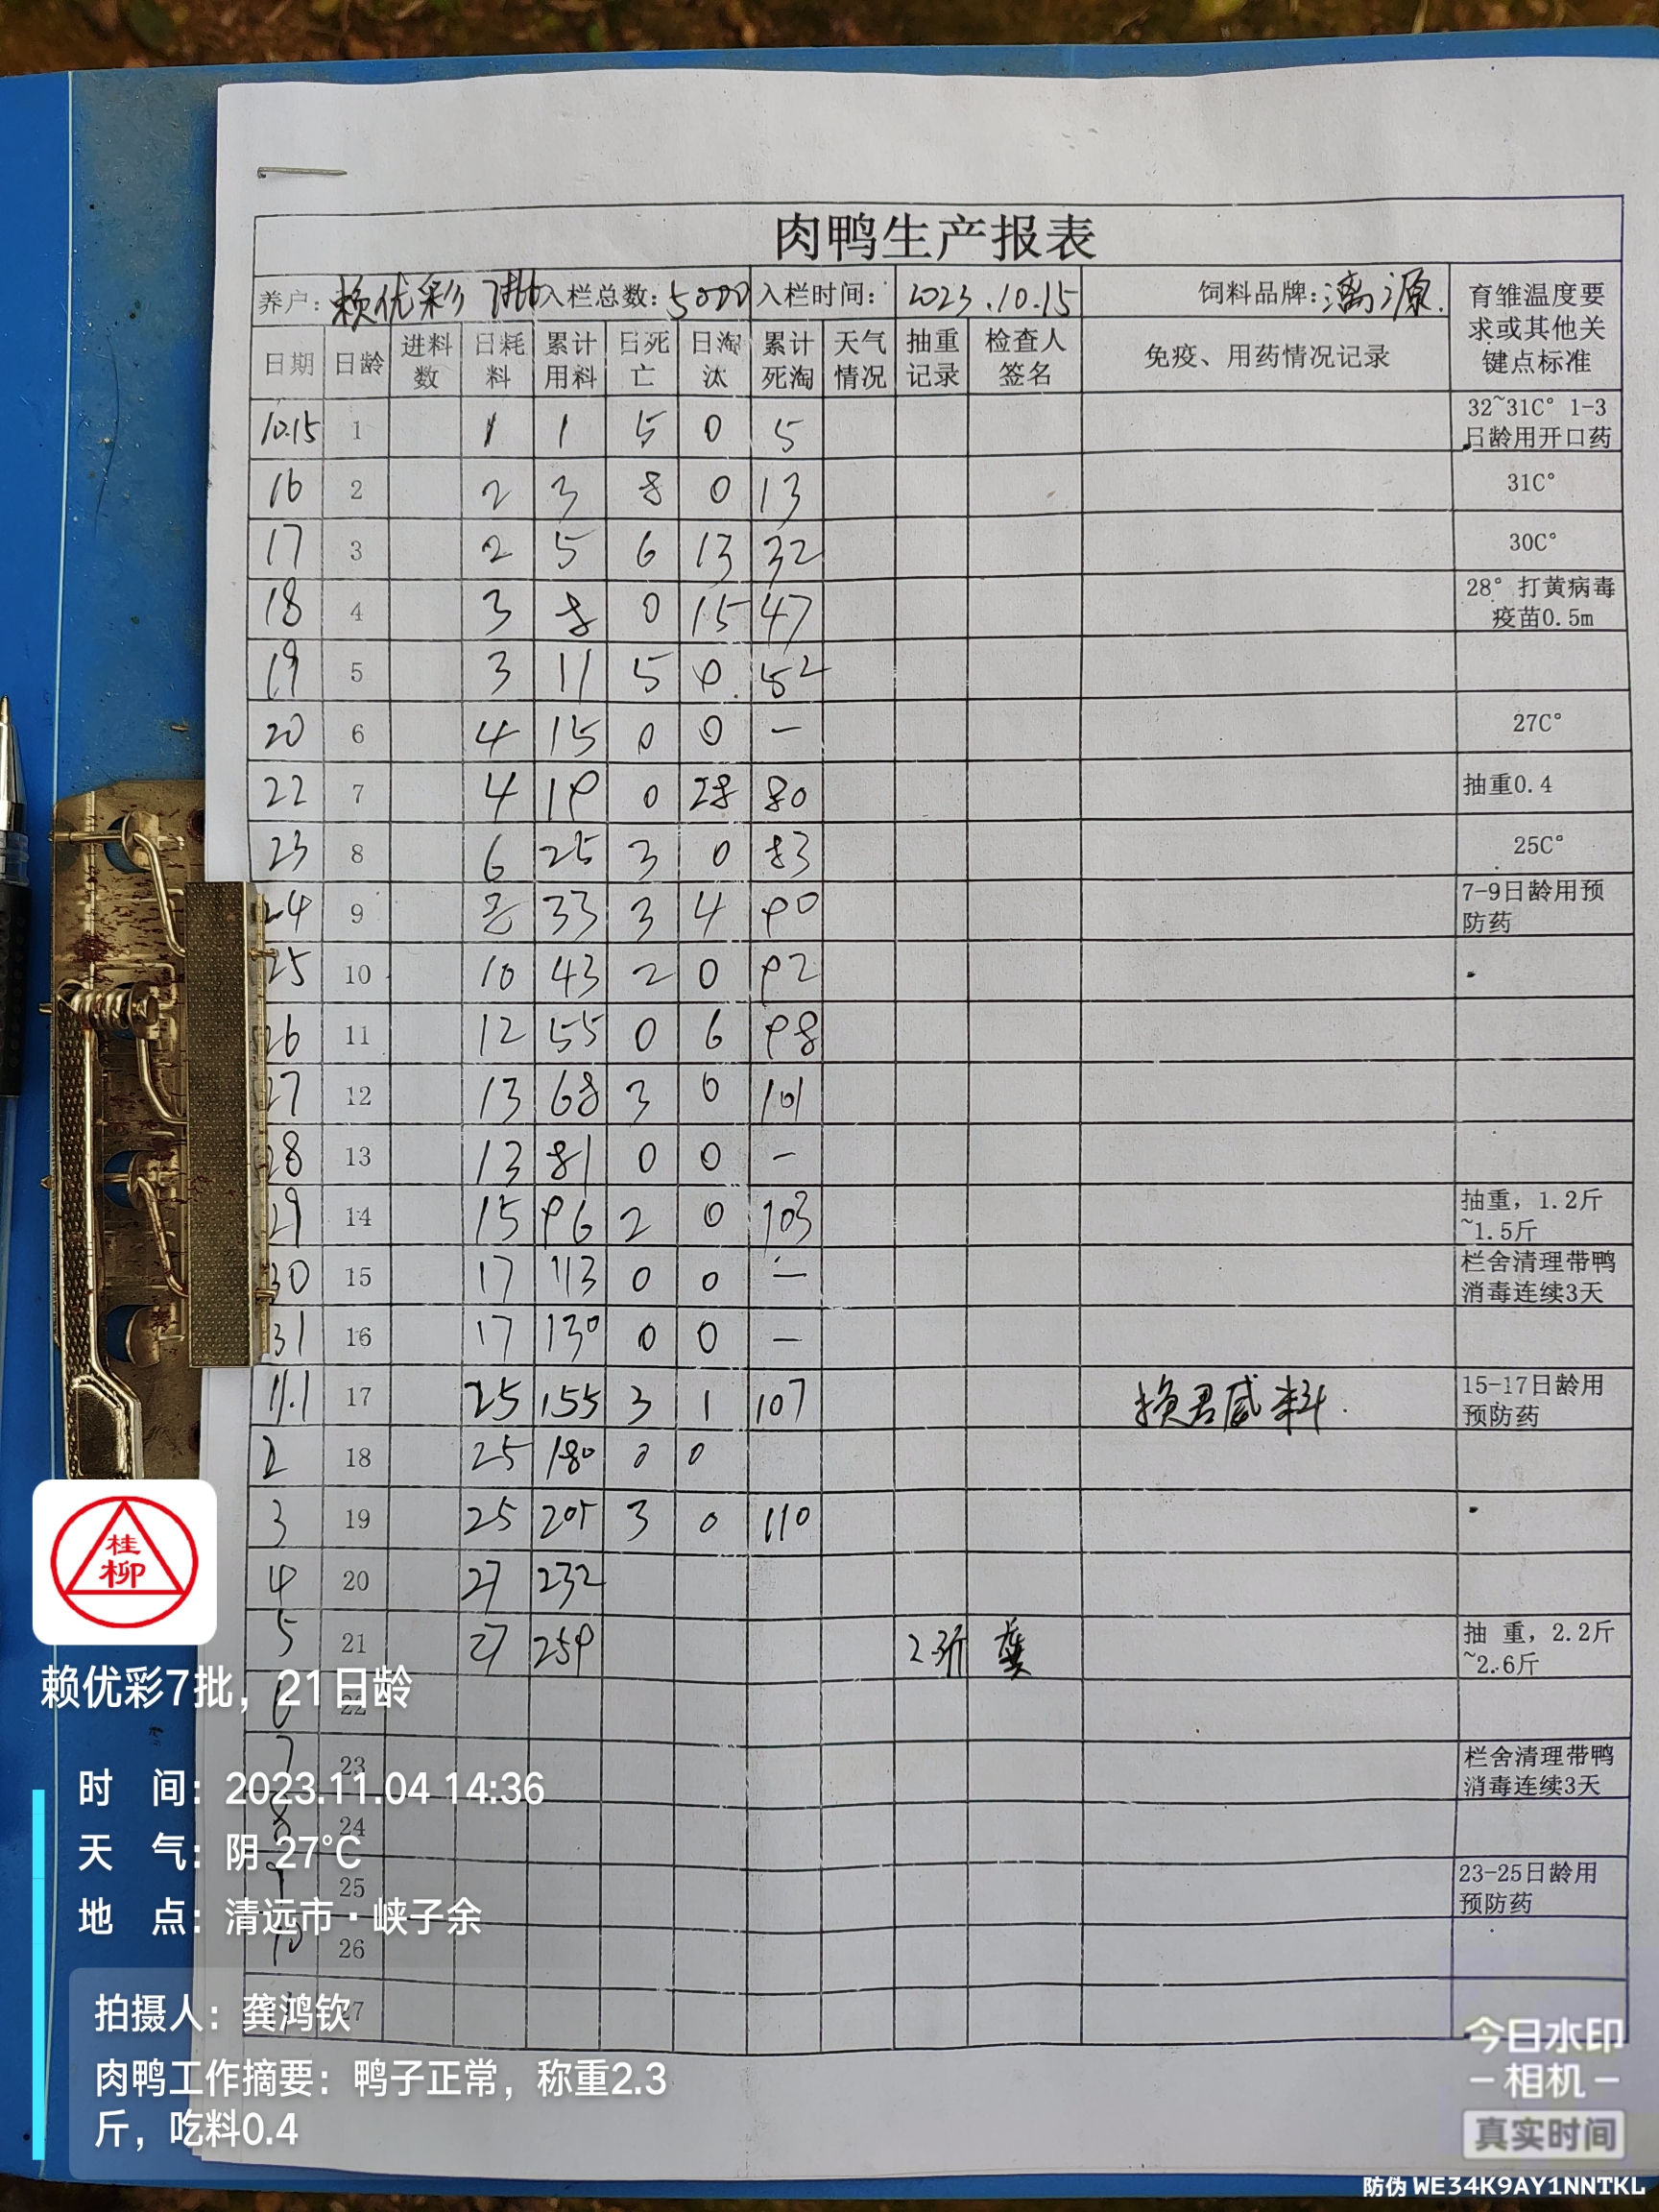 肉鸭生产报表
养户：赖优彩 7批 入栏总数：5000 入栏时间： 2023.10.15 饲料品牌：漓源. 育雏温度要求或其他关键点标准
日期 日龄 进料数 日耗料 累计用料 日死亡 日淘汰 累计死淘 天气情况 抽重记录 检查人签名 免疫、用药情况记录
10.15 1 1 1 5 0 5 32~31C° 1-3日龄用开口药
16 2 2 3 8 0 13 31C°
17 3 2 5 6 13 32 30C°
18 4 3 8 0 15 47 28° 打黄病毒疫苗0.5m
19 5 3 11 5 0 52
20 6 4 15 0 0 — 27C°
22 7 4 19 0 28 80 抽重0.4
23 8 6 25 3 0 83 25C°
24 9 8 33 3 4 90 7-9日龄用预防药
25 10 10 43 2 0 92
26 11 12 55 0 6 98
27 12 13 68 3 0 101
28 13 13 81 0 0 —
29 14 15 96 2 0 103 抽重，1.2斤~1.5斤
30 15 17 113 0 0 — 栏舍清理带鸭消毒连续3天
31 16 17 130 0 0 —
11.1 17 25 155 3 1 107 料. 15-17日龄用预防药
2 18 25 180 0 0
3 19 25 205 3 0 110
4 20 27 232
5 21 27 259 2.3斤 龚 抽 重，2.2斤~2.6斤
6 22
7 23 栏舍清理带鸭消毒连续3天
8 24
9 25 23-25日龄用预防药
10 26
27
桂
柳
赖优彩7批，21日龄
时 间：2023.11.04 14:36
天 气：阴 27°C
地 点：清远市·峡子余
拍摄人：龚鸿钦
肉鸭工作摘要：鸭子正常，称重2.3
斤，吃料0.4
今日水印
－相机－
真实时间
防伪 WE34K9AY1NNTKL